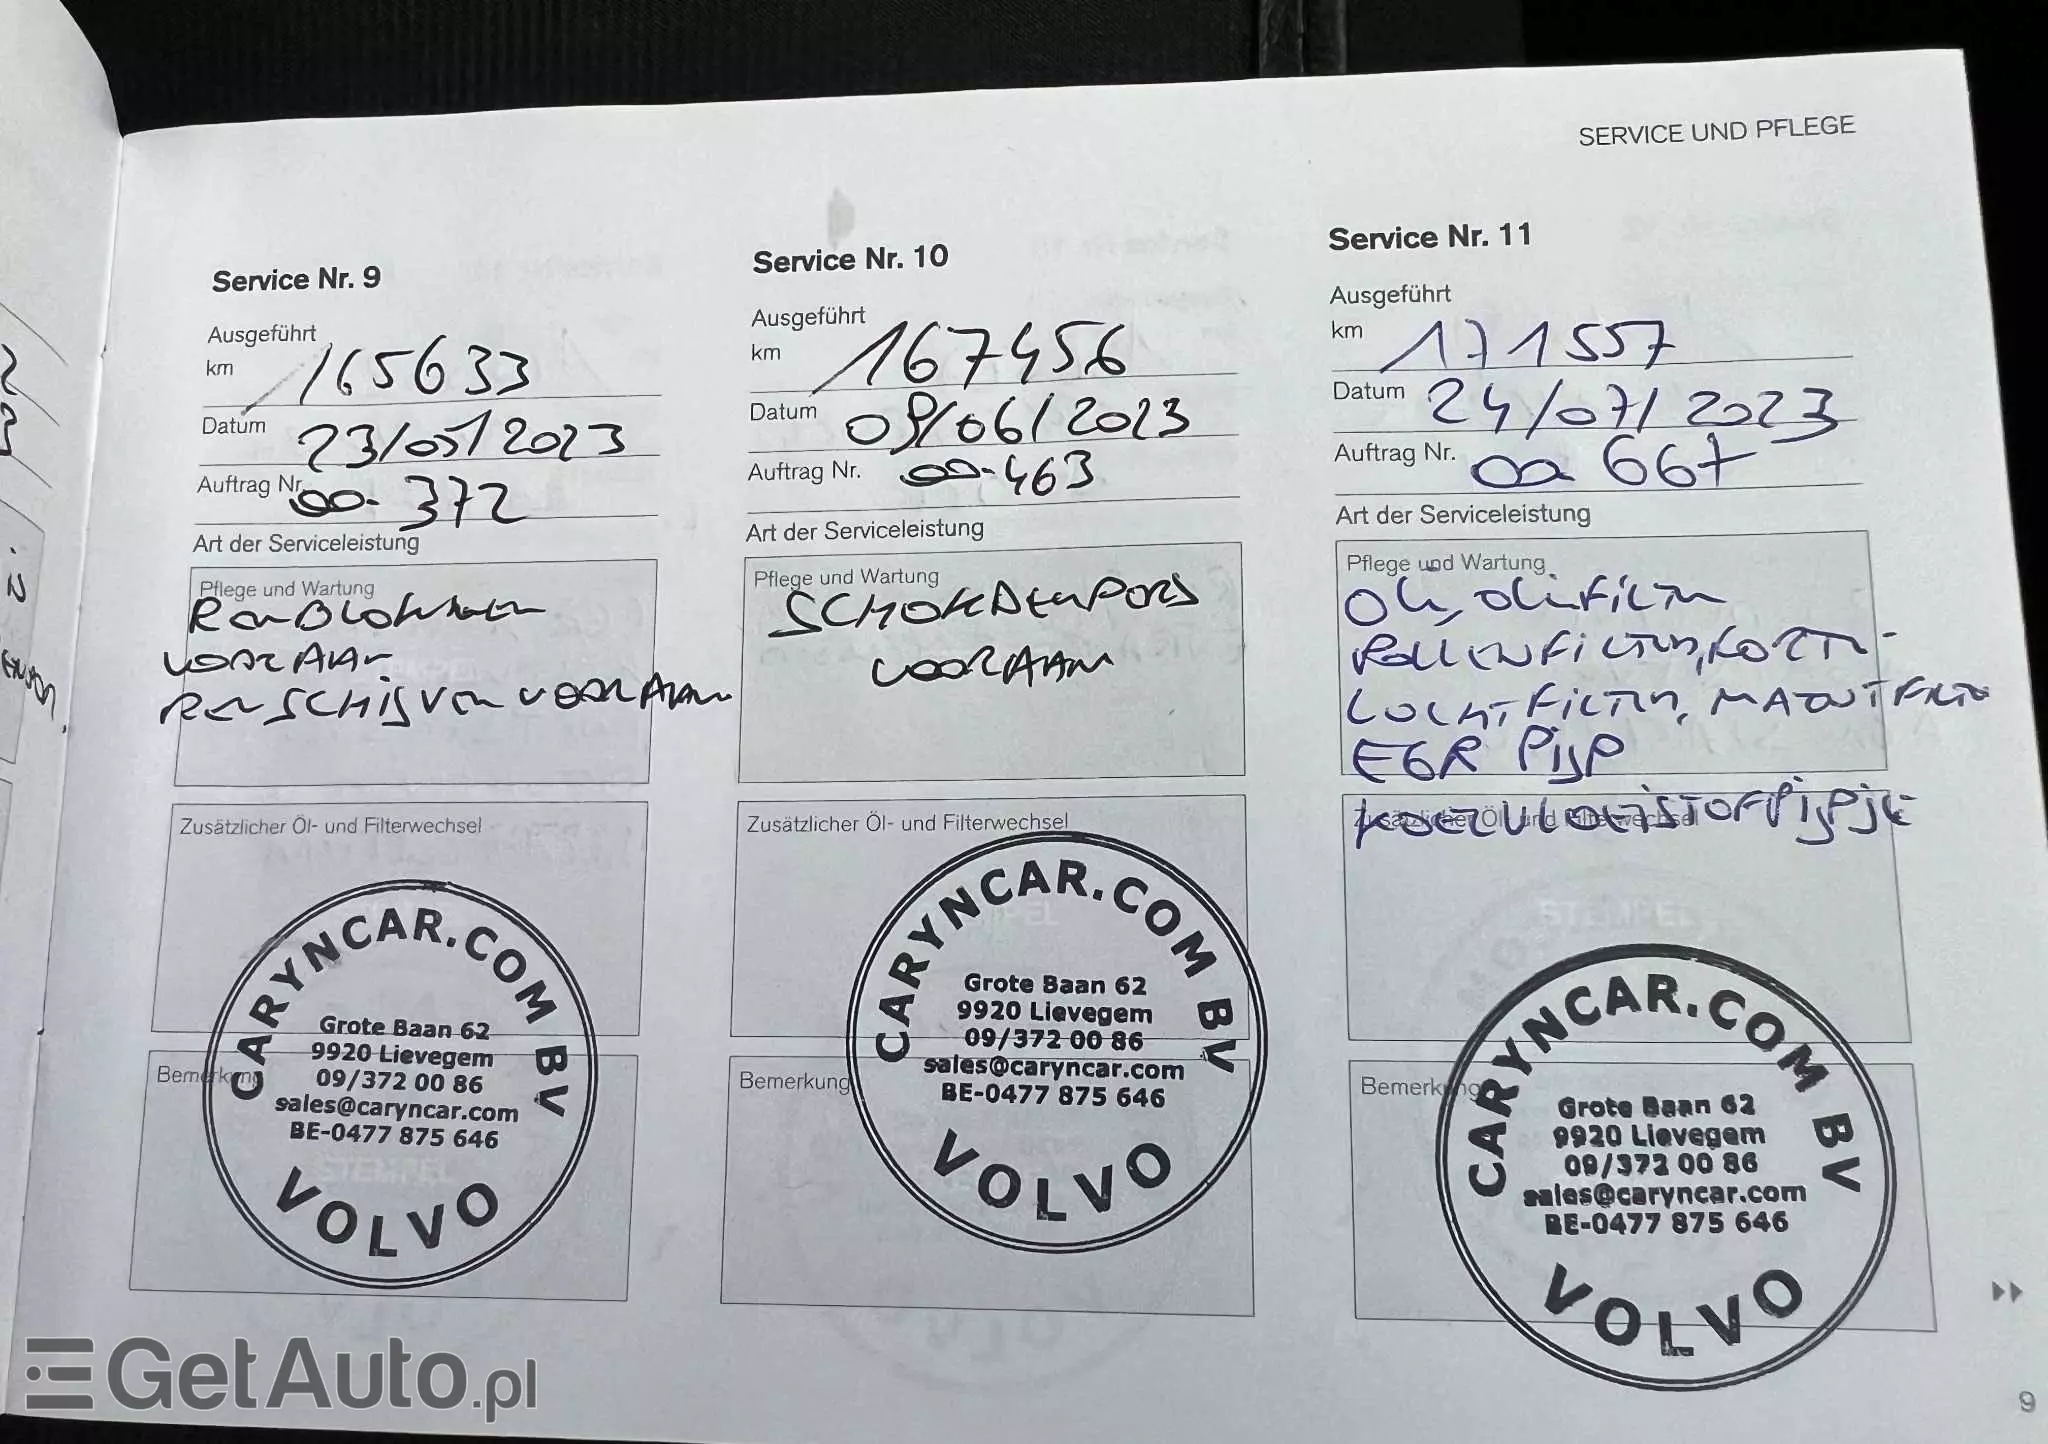 SERVICE UND PFLEGE
Service Nr. 9
Ausgeführt
km 165633
Datum 23/05/2023
Auftrag Nr. 00-372
Art der Serviceleistung
Pflege und Wartung
VOORAAN
REMSCHIJVEN VOORAAN
Zusätzlicher Öl- und Filterwechsel
Bemerkung
CARYNCAR.COM BV
Grote Baan 62
9920 Lievegem
09/372 00 86
sales@caryncar.com
BE-0477 875 646
VOLVO
Service Nr. 10
Ausgeführt
km 167456
Datum 09/06/2023
Auftrag Nr. 00-463
Art der Serviceleistung
Pflege und Wartung
SCHOKDEMPERS
VOORAAN
Zusätzlicher Öl- und Filterwechsel
Bemerkung
CARYNCAR.COM BV
Grote Baan 62
9920 Lievegem
09/372 00 86
sales@caryncar.com
BE-0477 875 646
VOLVO
Service Nr. 11
Ausgeführt
km 171557
Datum 24/07/2023
Auftrag Nr. 00 667
Art der Serviceleistung
Pflege und Wartung
OLIE, OLIEFILTER
POLLENFILTER,
LUCHTFILTER, MAZOUTFILTER
EGR PIJP
KOELVLOEISTOFPIJPJE
Zusätzlicher Öl- und Filterwechsel
STEMPEL
Bemerkung
CARYNCAR.COM BV
Grote Baan 62
9920 Lievegem
09/372 00 86
sales@caryncar.com
BE-0477 875 646
VOLVO
9
GetAuto.pl